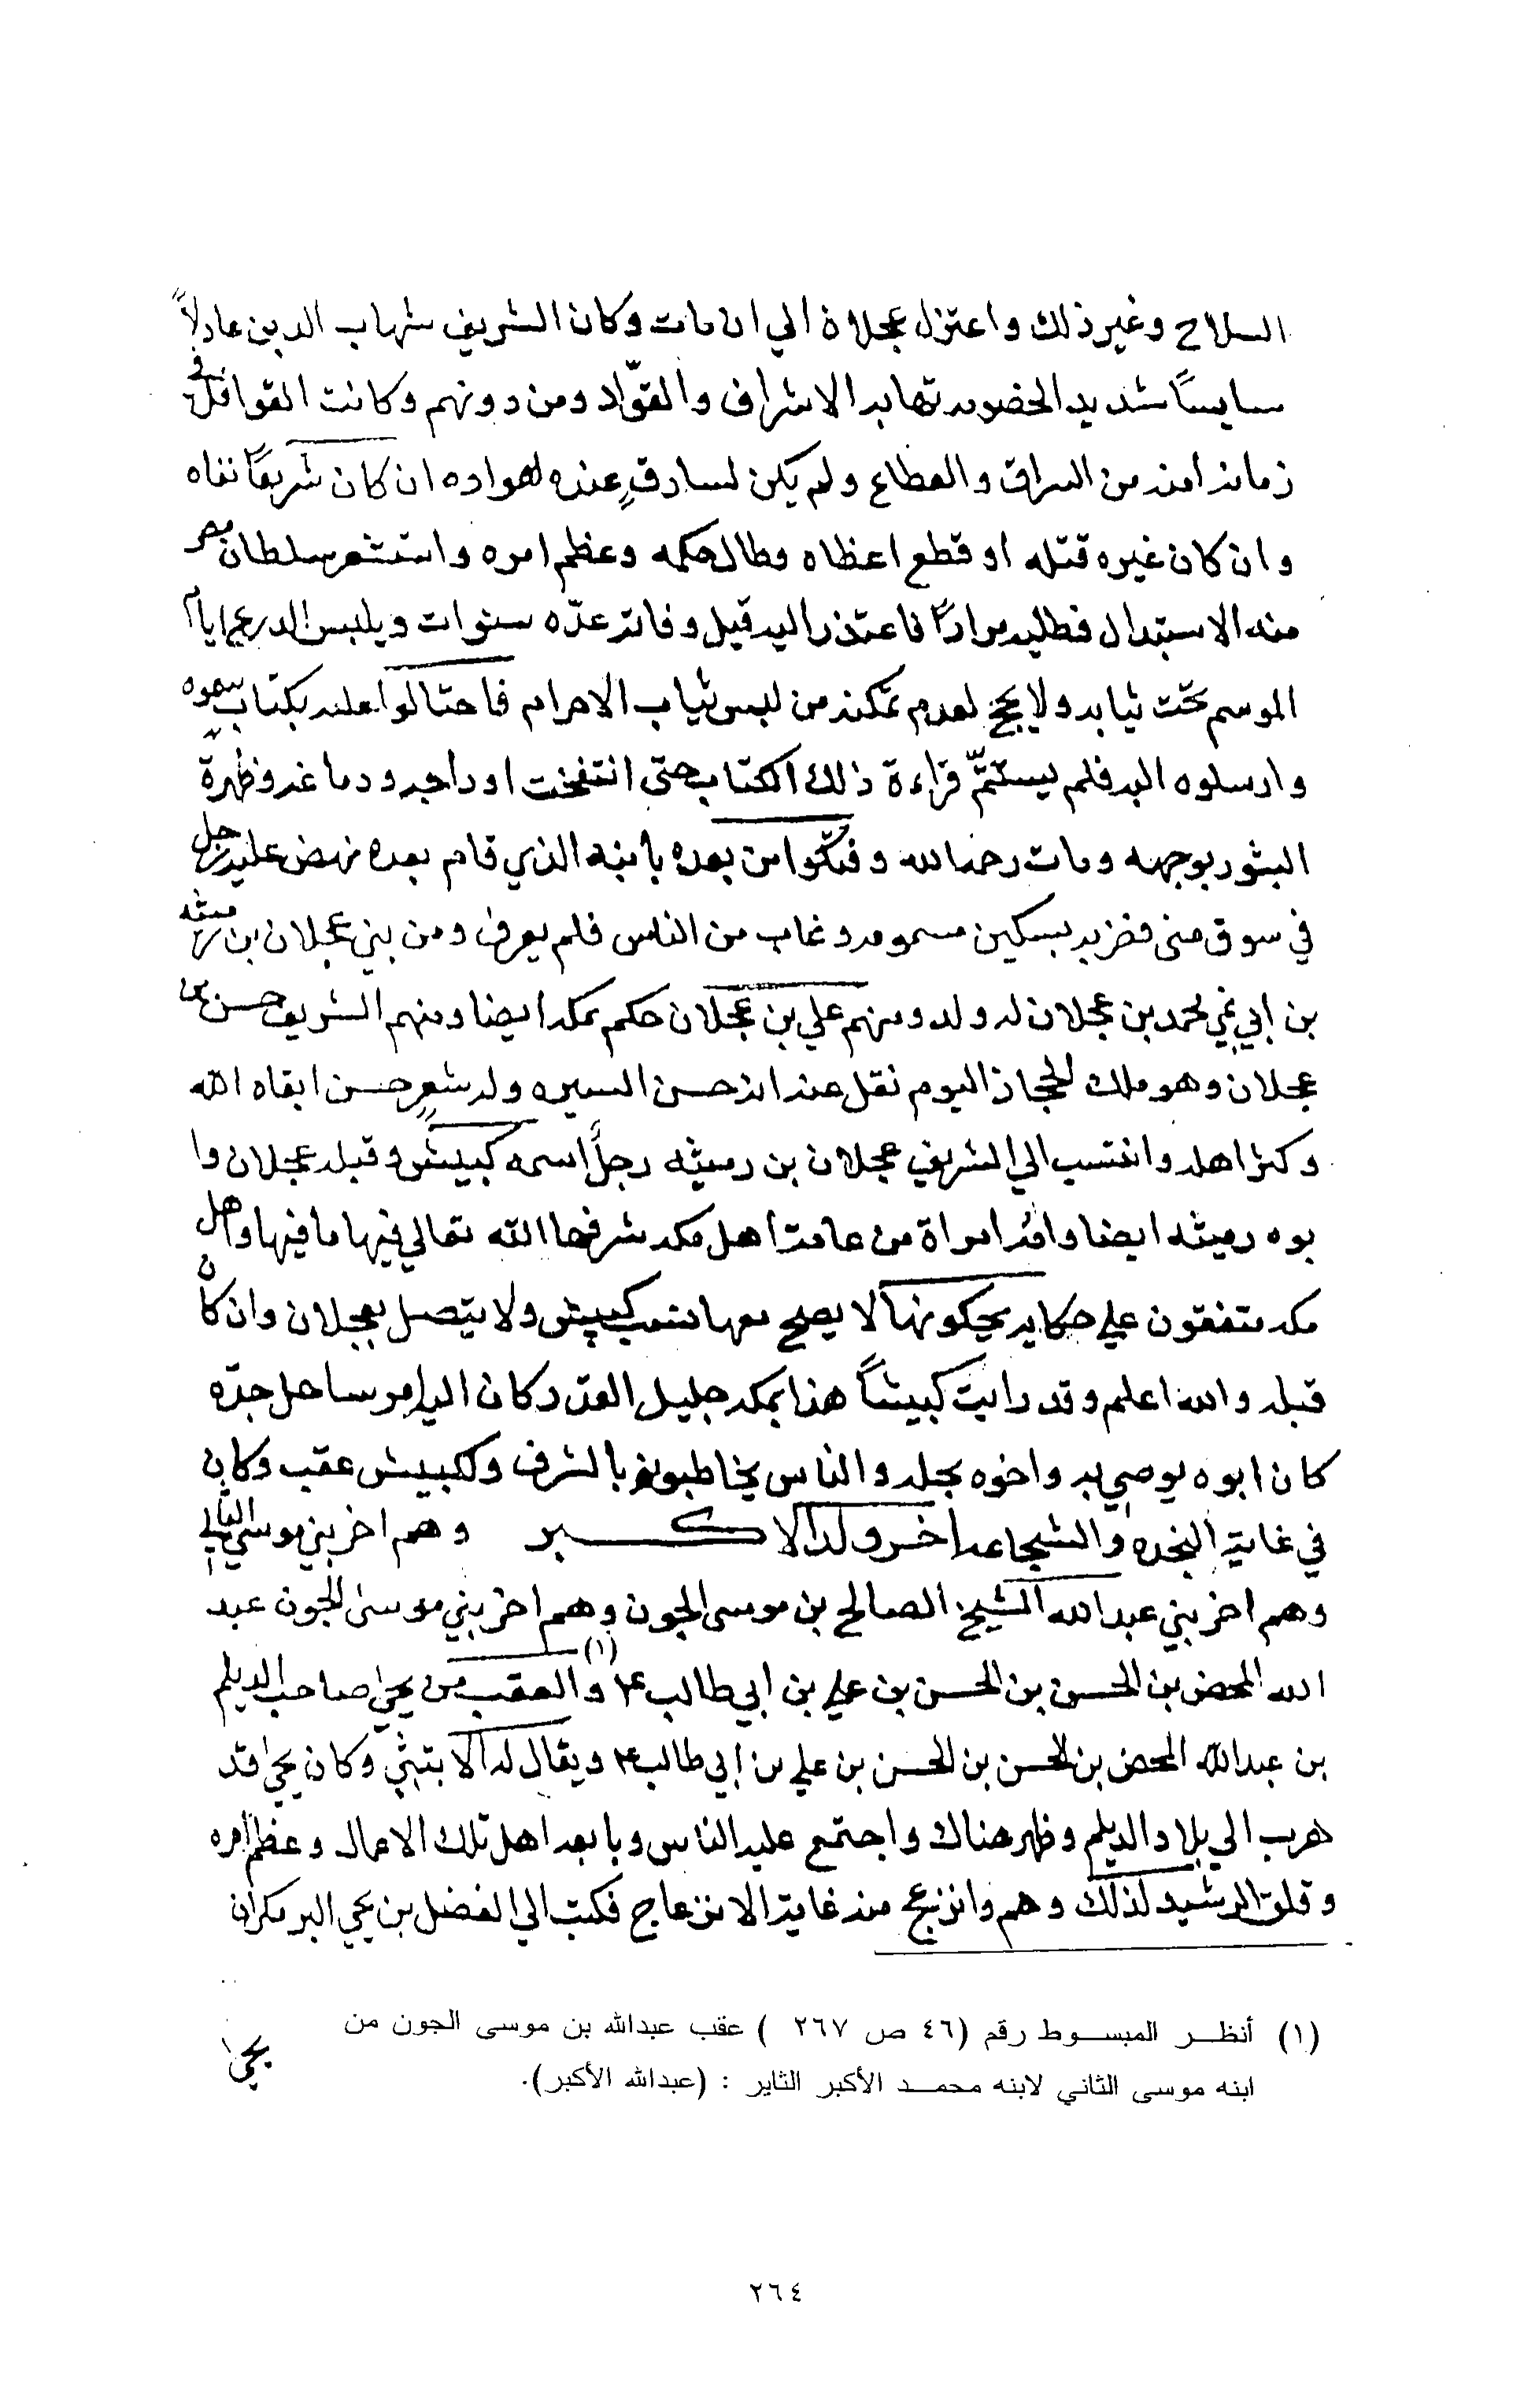 السلاح وغير ذلك واعتزل عجلان الي ان مات وكان الشريف شهاب الدين عادلاً
سايساً شديد الخضومه تهابه الاشراف والقوّاد ومن دونهم وكانت القوافل في
زمانه امنه من السراق والقطاع ولم يكن لسارقٍ عنده لهواده ان كان شريفاً نفاه
وان كان غيره قتله او قطع اعظاه وطال حكمه وعظم امره واستشعر سلطان مصر
منه الاستبدال فطلبه مراراً فاعتذر اليه قيل وفاته عدّه سنوات ويلبس الدرع ايام
الموسم تحت ثيابه ولا يحج لعدم تمكنه من لبس ثياب الاحرام فاحتالوا عليه بكتاب سموه
وارسلوه اليه فلم يستتمّ قراءة ذلك الكتاب حتى انتفخت اوداجه ودماغه وظهرة
البثور بوجهه ومات رحمه الله وفتكوا من بعده بأبنه الذي قام بعده نهض عليه رجل
في سوق منى فضربه بسكين مسمومه وغاب من الناس فلم يعرف ومن بني عجلان بن رميثه
بن إبي نمي محمد بن عجلان له ولد ومنهم علي بن عجلان حكم بمكه ايضا ومنهم الشريف حسن بن
عجلان وهو ملك الحجاز اليوم نقل عنه انه حسن السيره وله شعرٍ حسن ابقاه الله
وكثر اهله وانتسب الي الشريف عجلان بن رميثه رجلٌ اسمه كبيش وقبله عجلان وا
بوه رميثه ايضا وامّه امراة من عامة اهل مكه شرفها الله تعالي فيها ما فيها واهل
مكه متفقون علي حكايه يحكونها لا يصح معها نسب كبيش ولا يتصل بعجلان وان كان
قبله والله اعلم وقد رايت كبيشاً هذا بمكه جليل القدر وكان اليه امر ساحل جدّه
كان ابوه يوصي به واخوه يجله والناس يخاطبونه بالشرف ولكبيش عقب وكان
في غاية النجده والشجاعه اخر ولد الاكبر وهم اخر بني موسي الثاني
وهم اخر بني عبدالله الشيخ الصالح بن موسى الجون وهم اخر بني موسى الجون عبد
الله المحض بن الحسن بن الحسن بن علي بن ابي طالب ع (١) والعقب من يحيى صاحب الديلم
بن عبدالله المحض بن الحسن بن الحسن بن علي بن إبي طالب ع ويقال له الابتثي وكان يحيى قد
هرب الي بلاد الديلم وظهر هناك واجتمع عليه الناس وبايعه اهل تلك الاعمال وعظم امره
وقلق الرشيد لذلك وهم وانزعج منه غاية الانزعاج فكتب الي الفضل بن يحيى البرمكي ان
(١) أنظر المبسوط رقم (٤٦ ص ٢٦٧ ) عقب عبدالله بن موسى الجون من
ابنه موسى الثاني لابنه محمد الأكبر الثاير : (عبدالله الأكبر).
يحيى
٢٦٤